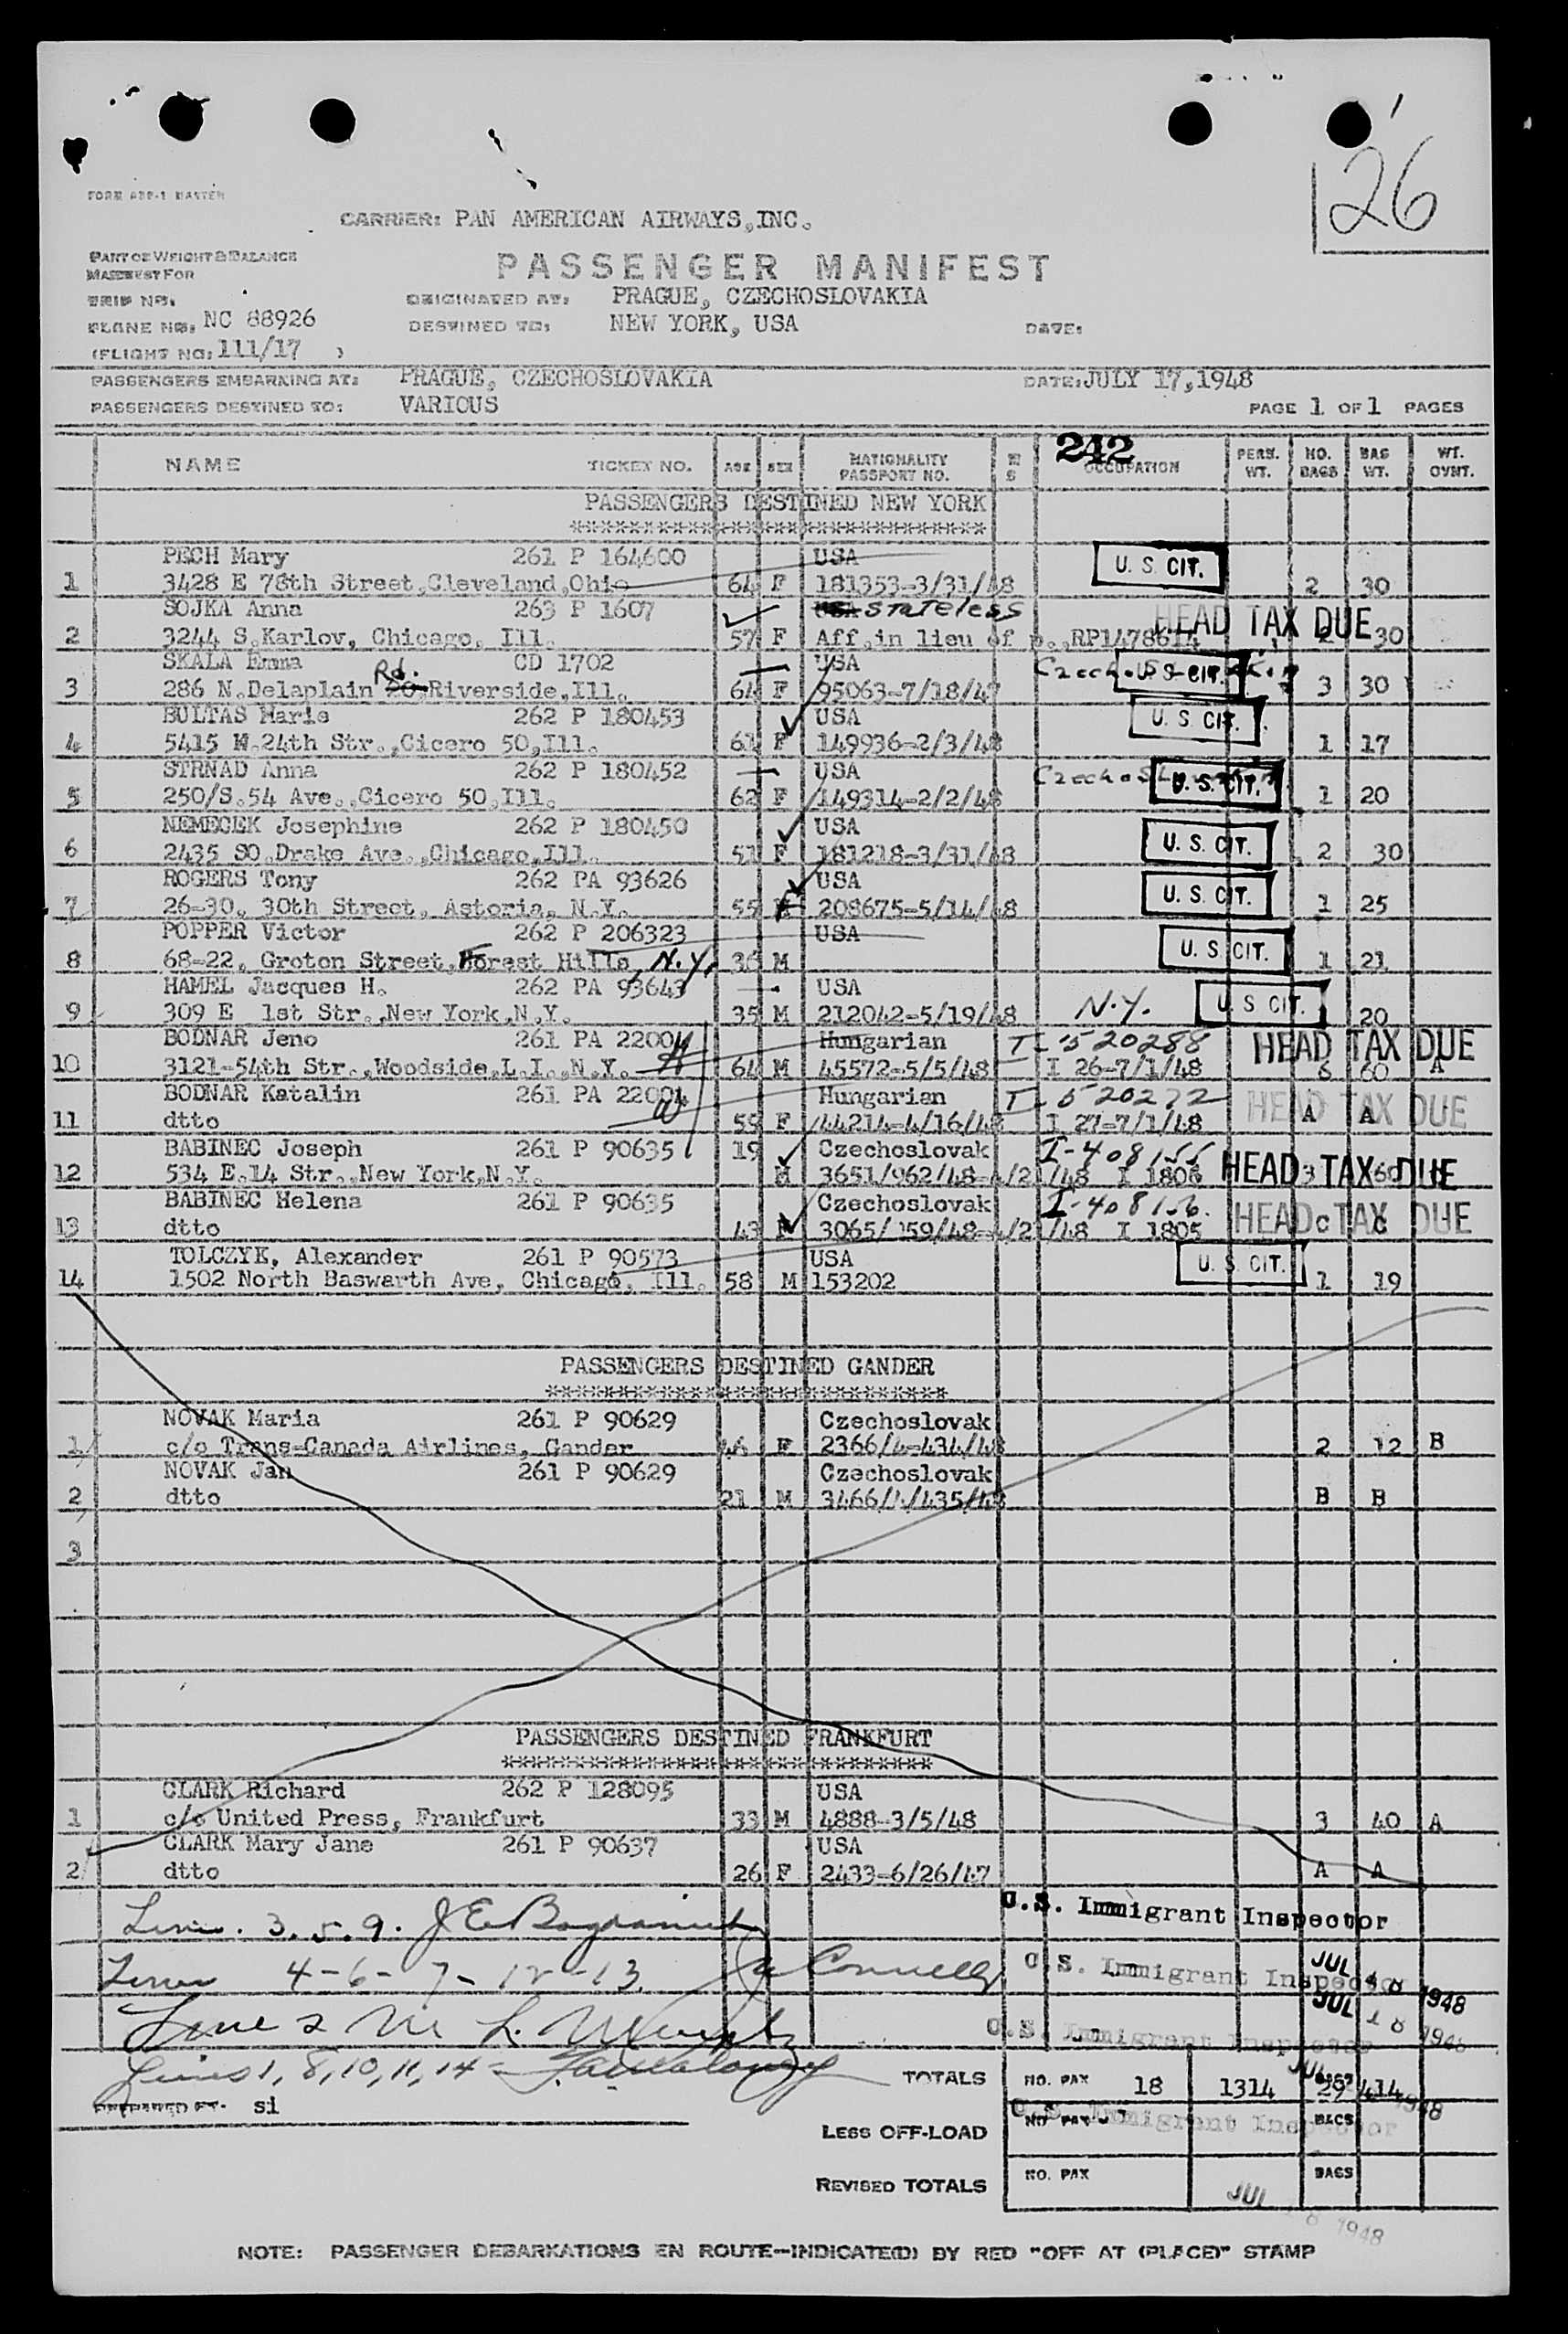 26
FORM ABP-1 MASTER
CARRIER: PAN AMERICAN AIRWAYS, INC.
PART OF WEIGHT & BALANCE
MANIFEST FOR
PASSENGER MANIFEST
TRIP NO.
ORIGINATED AT: PRAGUE, CZECHOSLOVAKIA
PLANE NO. NC 88926
DESTINED TO: NEW YORK, USA DATE:
(FLIGHT NO: 111/17 )
PASSENGERS EMBARKING AT: PRAGUE, CZECHOSLOVAKIA DATE: JULY 17, 1948
PASSENGERS DESTINED TO: VARIOUS PAGE 1 OF 1 PAGES
242
NAME TICKET NO. AGE SEX NATIONALITY PASSPORT NO. OCCUPATION PERS. WT. NO. BAGS BAG WT. WT. OVNT.
PASSENGERS DESTINED NEW YORK
*****************************
PECH Mary 261 P 164600 USA U. S. CIT.
1 3428 E 78th Street, Cleveland, Ohio 64 F 181353-3/31/48 2 30
SOJKA Anna 263 P 1607 stateless HEAD TAX DUE
2 3244 S.Karlov, Chicago, Ill. 57 F Aff. in lieu of p. RP1478614 2 30
SKALA Emma CD 1702 USA U. S. CIT.
3 286 N.Delaplain Rd. Riverside, Ill. 64 F 95063-7/18/47 3 30
BULTAS Marie 262 P 180453 USA U. S. CIT.
4 5415 W.24th Str., Cicero 50, Ill. 61 F 149936-2/3/48 1 17
STRNAD Anna 262 P 180452 USA U. S. CIT.
5 250/S.54 Ave., Cicero 50, Ill. 62 F 149314-2/2/48 1 20
NEMECEK Josephine 262 P 180450 USA U. S. CIT.
6 2435 SO.Drake Ave., Chicago, Ill. 51 F 181218-3/31/48 2 30
ROGERS Tony 262 PA 93626 USA U. S. CIT.
7 26-30, 30th Street, Astoria, N.Y. 55 F 208675-5/14/48 1 25
POPPER Victor 262 P 206323 USA U. S. CIT.
8 68-22, Groton Street, Forest Hills, N.Y. 36 M 1 21
HAMEL Jacques H. 262 PA 93643 USA N.Y. U. S. CIT.
9 309 E 1st Str., New York, N.Y. 35 M 212042-5/19/48 20
BODNAR Jeno 261 PA 22004 Hungarian T-520288 HEAD TAX DUE
10 3121-54th Str., Woodside, L.I., N.Y. 64 M 45572-5/5/48 I 26-7/1/48 6 60 A
BODNAR Katalin 261 PA 22004 Hungarian T-520272 HEAD TAX DUE
11 dtto 55 F 44214-4/16/48 I 27-7/1/48 A A
BABINEC Joseph 261 P 90635 19 Czechoslovak I-408155 HEAD TAX DUE
12 534 E.14 Str., New York, N.Y. M 3651/962/48-4/21/48 I 1806 3 60
BABINEC Helena 261 P 90635 Czechoslovak I-408156. HEAD TAX DUE
13 dtto 43 F 3065/959/48-4/21/48 I 1805 C C
TOLCZYK, Alexander 261 P 90573 USA U. S. CIT.
14 1502 North Baswarth Ave, Chicago, Ill. 58 M 153202 1 19
PASSENGERS DESTINED GANDER
****************************
NOVAK Maria 261 P 90629 Czechoslovak
1 c/o Trans-Canada Airlines, Gander 46 F 2366/4-434/48 2 12 B
NOVAK Jan 261 P 90629 Czechoslovak
2 dtto 21 M 3466/4/435/48 B B
3
PASSENGERS DESTINED FRANKFURT
******************************
CLARK Richard 262 P 128095 USA
1 c/o United Press, Frankfurt 33 M 4888-3/5/48 3 40 A
CLARK Mary Jane 261 P 90637 USA
2 dtto 26 F 2433-6/26/47 A A
U.S. Immigrant Inspector
Lines. 3. 5. 9.
U.S. Immigrant Inspector JUL 18 1948
Lines 4-6-7-12-13. Connelly
JUL 18 1948
U.S. Immigrant Inspector
Line 2
Lines 1, 8, 10, 11, 14 -
JUL 18 1948
TOTALS NO. PAX 18 1314 29 414
PREPARED BY. si
U.S. Immigrant Inspector
LESS OFF-LOAD NO. PAX BAGS
REVISED TOTALS NO. PAX BAGS
JUL 18 1948
NOTE: PASSENGER DEBARKATIONS EN ROUTE—INDICATE(D) BY RED "OFF AT (PLACE)" STAMP